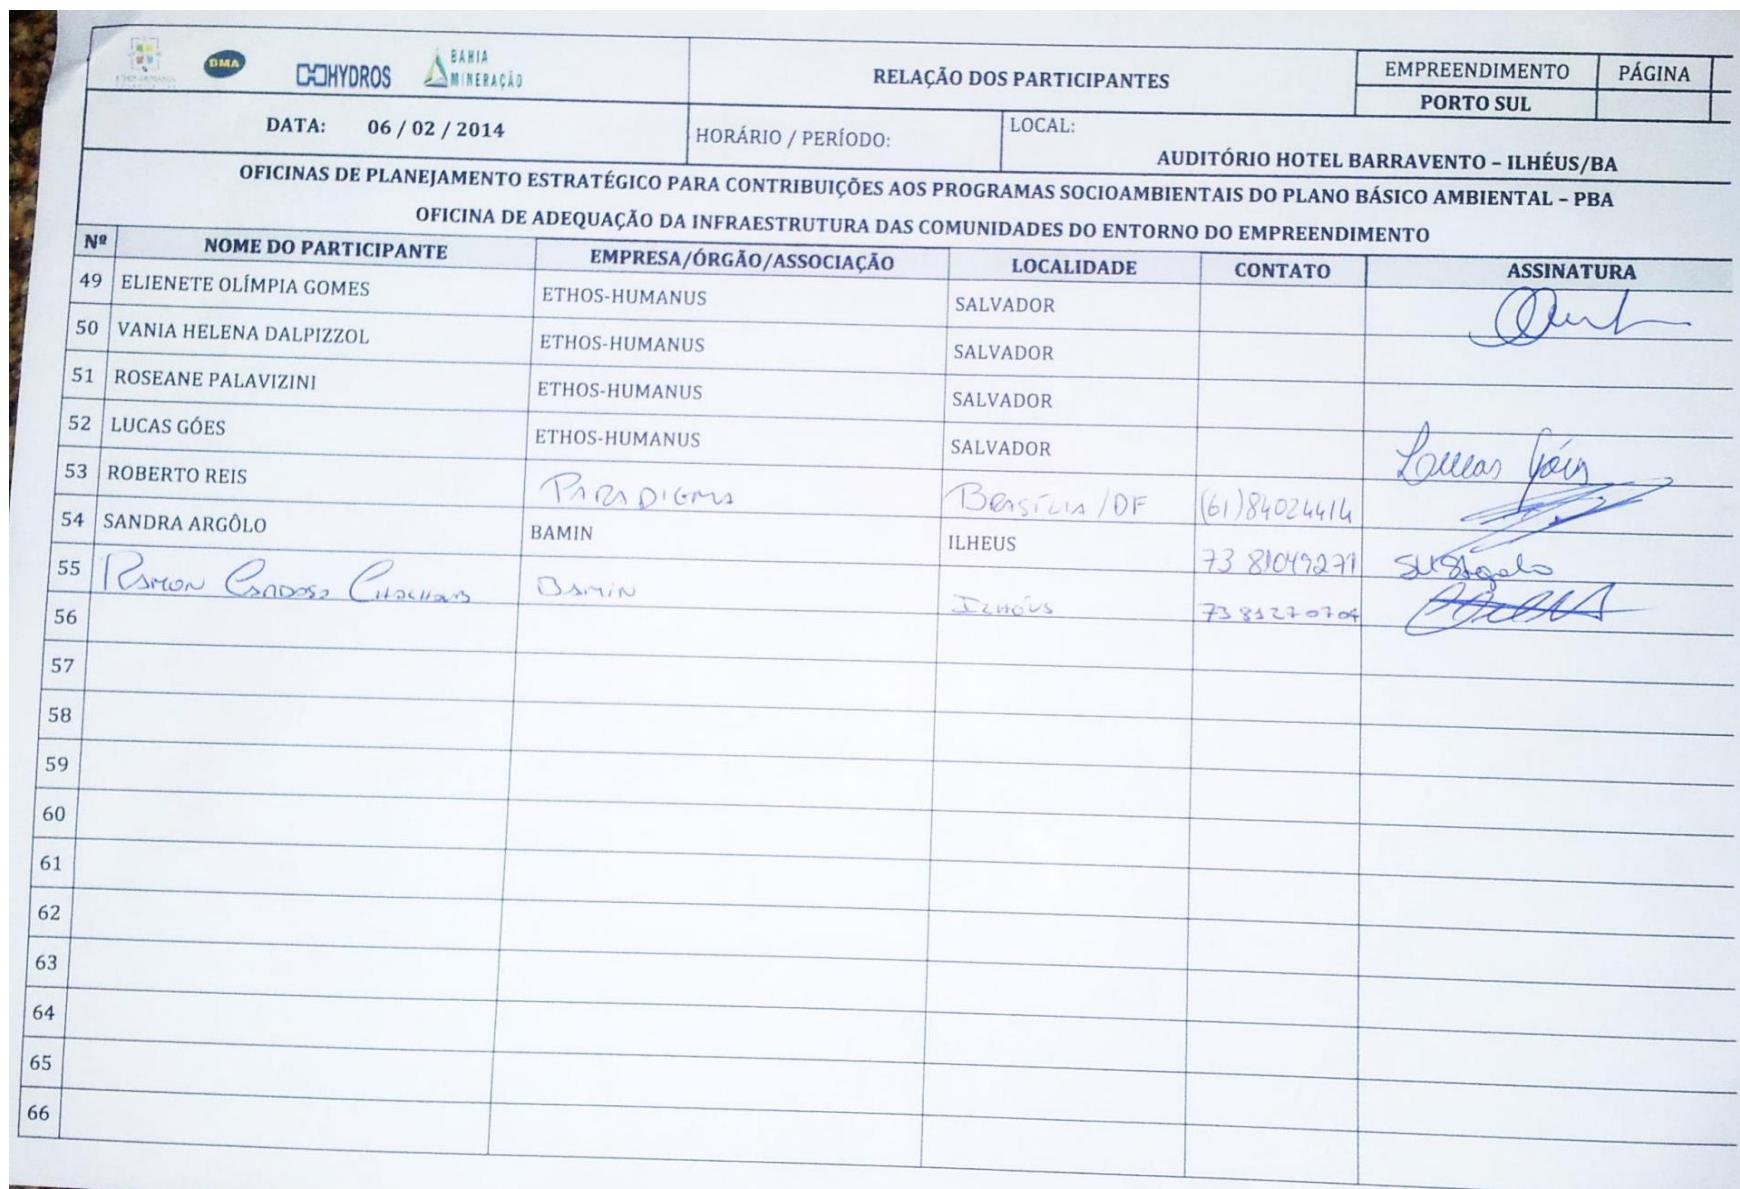 BMA
HYDROS
BAHIA
MINERAÇÃO
RELAÇÃO DOS PARTICIPANTES
EMPREENDIMENTO PÁGINA
PORTO SUL
DATA: 06 / 02 / 2014
HORÁRIO / PERÍODO:
LOCAL:
AUDITÓRIO HOTEL BARRAVENTO – ILHÉUS/BA
OFICINAS DE PLANEJAMENTO ESTRATÉGICO PARA CONTRIBUIÇÕES AOS PROGRAMAS SOCIOAMBIENTAIS DO PLANO BÁSICO AMBIENTAL – PBA
OFICINA DE ADEQUAÇÃO DA INFRAESTRUTURA DAS COMUNIDADES DO ENTORNO DO EMPREENDIMENTO
Nº NOME DO PARTICIPANTE EMPRESA/ÓRGÃO/ASSOCIAÇÃO LOCALIDADE CONTATO ASSINATURA
49 ELIENETE OLÍMPIA GOMES ETHOS-HUMANUS SALVADOR
50 VANIA HELENA DALPIZZOL ETHOS-HUMANUS SALVADOR
51 ROSEANE PALAVIZINI ETHOS-HUMANUS SALVADOR
52 LUCAS GÓES ETHOS-HUMANUS SALVADOR Lucas Góes
53 ROBERTO REIS PARADIGMA BRASÍLIA/DF (61)84024414
54 SANDRA ARGÔLO BAMIN ILHEUS 73 81049271
55 RAMON CARDOSO BAMIN ILHÉUS 73 81270704
56
57
58
59
60
61
62
63
64
65
66